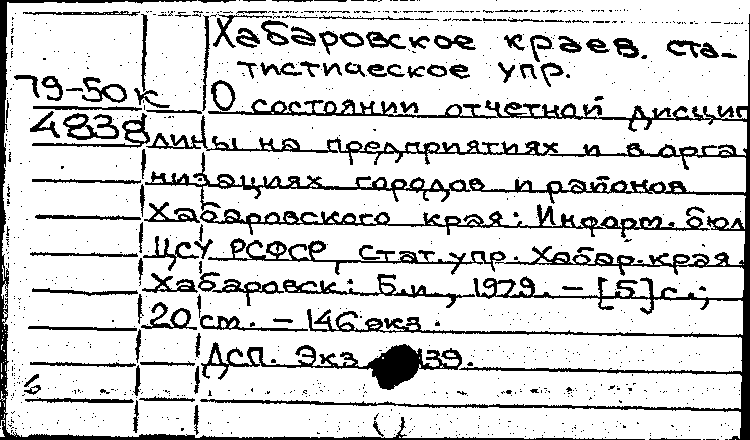 Хабаровское краев. ста-
тистическое упр.
79-50к О состоянии отчетной дисцип
4838 лины на предприятиях и в орга
низациях городов и районов
Хабаровского края: Информ. бюл
ЦСУ РСФСР, Стат. упр. Хабар. края.
Хабаровск: Б.и, 1979. – [5] с.;
20 см. – 146 экз.
ДСП. Экз 139.
б